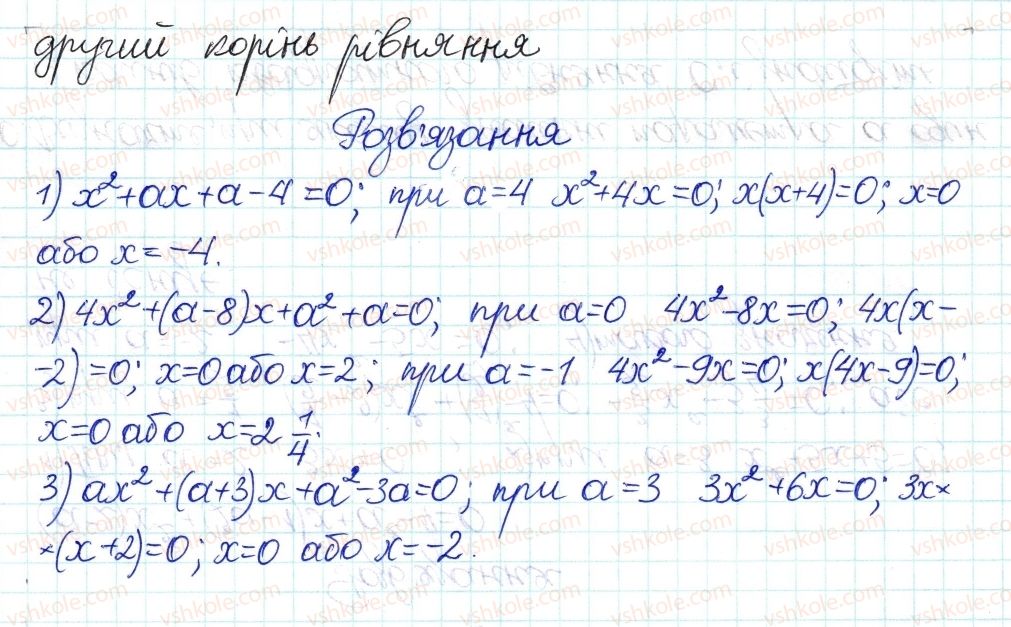 другий корінь рівняння
Розв'язання
1) x²+ax+a-4=0; при a=4 x²+4x=0; x(x+4)=0; x=0
або x=-4.
2) 4x²+(a-8)x+a²+a=0; при a=0 4x²-8x=0; 4x(x-
-2)=0; x=0 або x=2; при a=-1 4x²-9x=0; x(4x-9)=0;
x=0 або x=2 1/4.
3) ax²+(a+3)x+a²-3a=0; при a=3 3x²+6x=0; 3x×
×(x+2)=0; x=0 або x=-2.